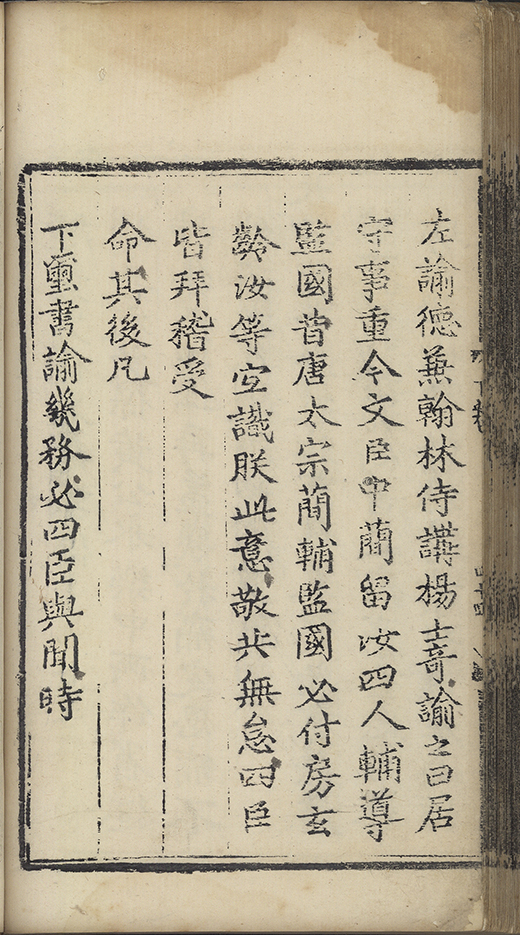 左諭德兼翰林侍講楊士竒諭之曰居
守事重今文臣中蕳留汝四人輔導
監國昔唐太宗蕳輔監國必付房玄
齡汝等宜識朕此意敬共無怠四臣
皆拜稽受
命其後凡
下璽書諭幾務必四臣與聞時